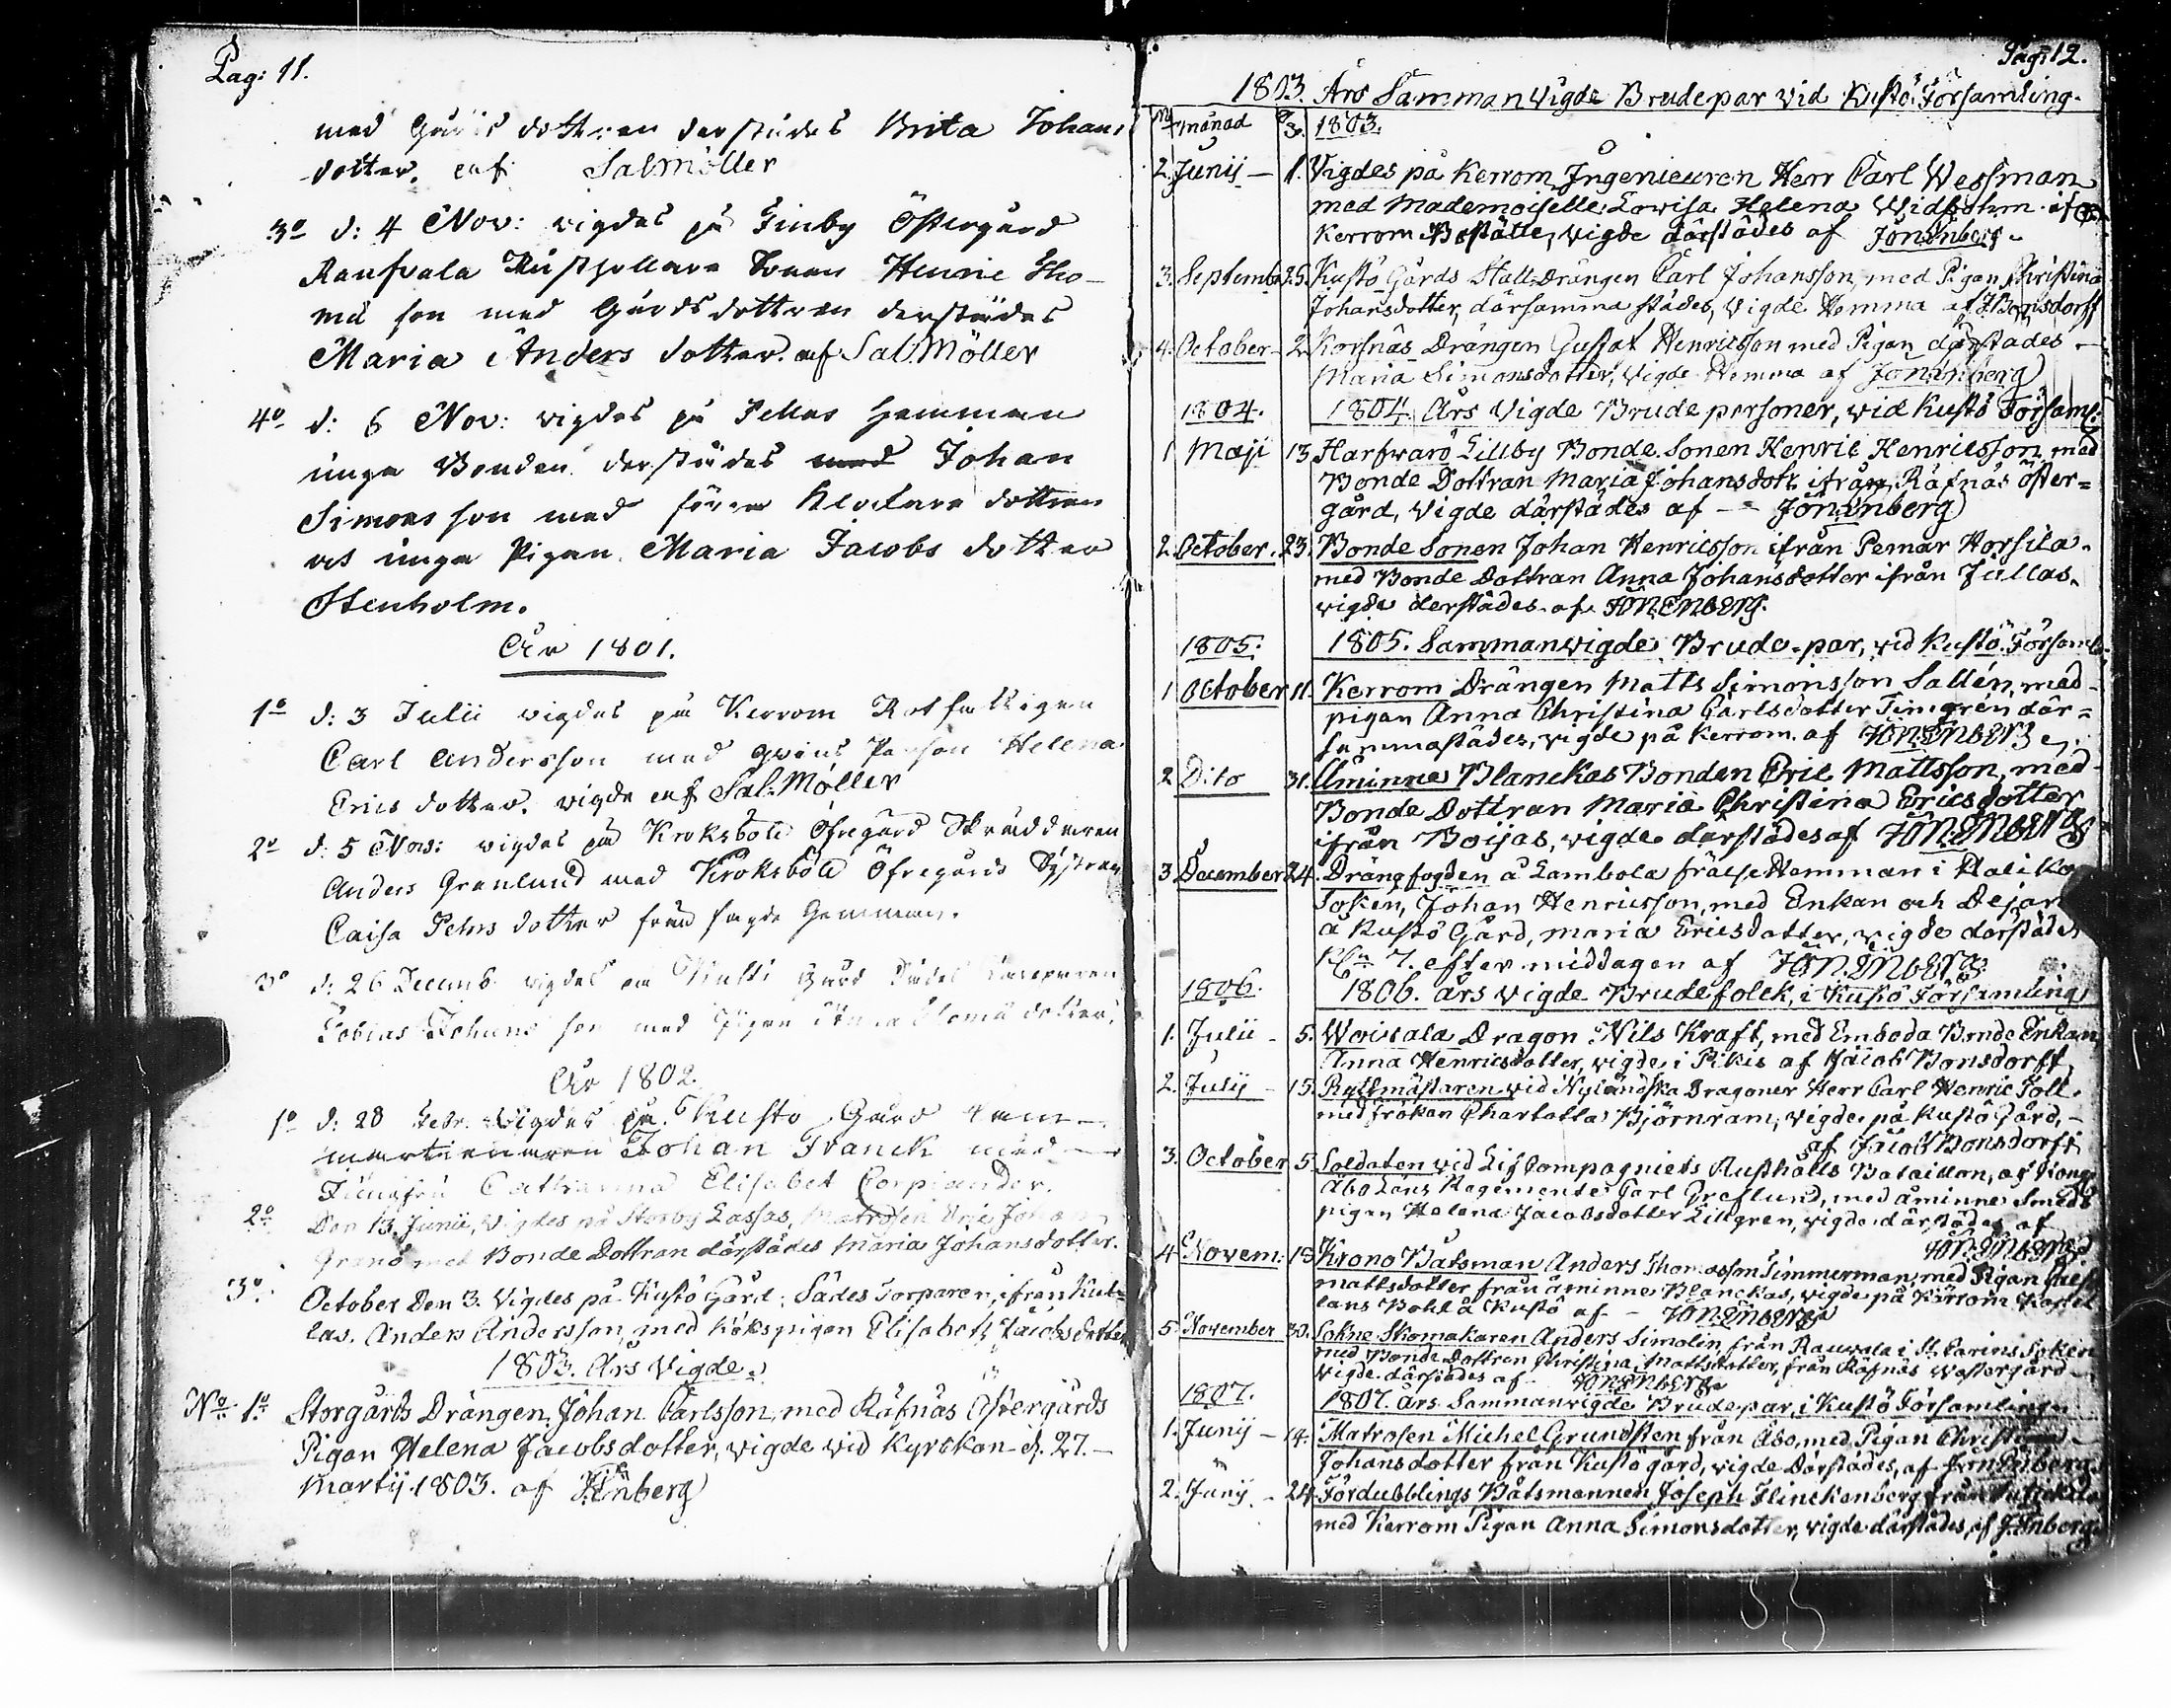 Pag: 11.
med Gårds dottren derstädes Brita Johans
dotter. af Sal Möller
3o d: 4 Nov: vigdes på Ginby Östergård
Raufvala Rusthollare Sonen Henric Tho-
mæ son med Gårds dottren derstädes
Maria Anders dotter. af Sal. Möller
4o d: 6 Nov: vigdes på Jullas Hemman
unga Bonden derstädes med Johan
Simons son med förra Klockare dottren
unga Pigan Maria Jacobs dotter
Stenholm.
År 1801.
1o d: 3 Julii vigdes på Kerrom Rotfattigen
Carl Andersson med Helena
Erics dotter. vigde af Sal. Möller
2o d: 5 Nov: vigdes på Kroksböle Öfregård Skräddaren
Anders Grenlund med Kroksböle Öfregårds Systren
Caisa Pehrs dotter från sagde Hemman.
3o d: 26 Decemb. vigdes på Kusto Gård Torparen
Tobias Johans son med Pigan Thomæ dotter.
År 1802.
1o d: 28 Febr. Vigdes på Kusto Gård
Johan Franck med
Jungfru Catharina Elisabet Corpiander.
2o Den 13. Junii, Vigdes på Storby Lassas, Matrosen Eric Johan
Grano med Bonde Dottran därstädes Maria Johansdotter.
3o. October Den 3. Vigdes på Kustö Gård, Sädes Torparen, ifrån Kul-
las. Anders Andersson, med Kökspigan Elisabeth Jacobsdotter
1803. Års Vigde.
No 1o Storgårds Drängen, Johan Carlsson, med Räfnäs Östergårds
Pigan Helena Jacobsdotter, vigde vid Kyrckan d. 27.
Martij. 1803. af Jönenberg
Pag: 12.
1803. Års Sammanvigde Brudepar vid Kustö Församling.
No månad D. 1803.
2. Junij – 1. Vigdes på Kerrom, Ingenieuren Herr Carl Wessman
med Mademoiselle Lowisa Helena Widbohm af
Kerrom Boställe, vigde därstädes af Jönenberg.
3. Septemb. 25. Kustö Gårds Stall-Drängen Carl Johansson, med Pigan Christina
Johansdotter, därsamma städes, Vigde Hemma af J. Bonsdorff
4. October – 2. Korfnäs Drängen Gustaf Henricsson med Pigan därstädes –
Maria Simonsdotter, Vigde Hemma af Jönenberg
1804. 1804. Års Vigde Brude personer, vid Kustö Församl:
1 Maji 13 Harfvarö Lillby Bonde Sonen Henric Henricsson, med
Bonde Dottran Maria Johansdott: ifrån, Räfnäs öster=
gård, Vigde därstädes af – - Jönenberg
2. October. 23. Bonde Sonen Johan Henricsson ifrån Pemar Horsila.
med Bonde Dottran Anna Johansdotter ifrån Jullas.
vigde derstädes af Jönenberg.
1805. 1805. Sammanvigde Brude-par, vid Kustö Församl:
1 October 11. Kerrom Drängen Matts Simonsson Sallén, med
pigan Anna Christina Carlsdotter Timgren där=
sammastädes, vigde på Kerrom. af Jönenberg
2 Dito 31. Åminne Blanckas Bonden Eric Mattsson, med
Bonde Dottran Maria Christina Ericsdotter
ifrån Boijas, vigde därstädes af Jönenberg
3. December 24. Drängfogden å Lambola frälse Hemman i Haliko
Soken, Johan Henricsson, med Enkan och Dejan
å Kustö Gård, Maria Ericsdotter, vigde därstädes
Kl. 7. efter middagen af Jönenberg
1806. 1806. års vigde Brudefolck, i Kustö Församling
1. Julii – 5. Woivala Dragon Nils Kraft, med Emboda Bonde Enkan
Anna Henricsdotter, vigde i Pikis af Jacob Bonsdorff
2. Julij – 15. Ryttmästaren vid Nyländska Dragoner Herr Carl Henric Toll.
med fröken Charlotta Björnram, vigde på Kustö Gård, –
af Jacob Bonsdorff
3. October 5. Soldaten vid Lif Compagniets Rusthålls Bataillon, af
Åbo Läns Regemente Carl Greflund, med åminne Smeds
pigan Helena Jacobsdotter Lillgren, vigde därstädes af
Jönenberg
4 Novem: 18. Krono Båtsman Anders Thomasson Timmerman, med Pigan
Mattsdotter från åminne Blanckas, vigde på Kärrom
å Kustö af – Jönenberg
5. November 30. Sokne Skomakaren Anders Simolin, från Rauvala i St. Carins Soken
med Bonde Dottren Christina Mattsdotter, från Räfnäs Westergård –
Vigde därstädes af Jönenberg
1807. 1807. års Sammanvigde Brudepar, i Kustö Församlingen
1. Junij – 14. Matrosen Michel Grundsten från Åbo, med Pigan Christina
Johansdotter från Kustö gård, vigde Därstädes, af Jönenberg
2. Junij – 24 Fördubblings Båtsmannen Joseph Flinckenberg från
med Kerrom Pigan Anna Simonsdotter, vigde därstädes, af Jönberg